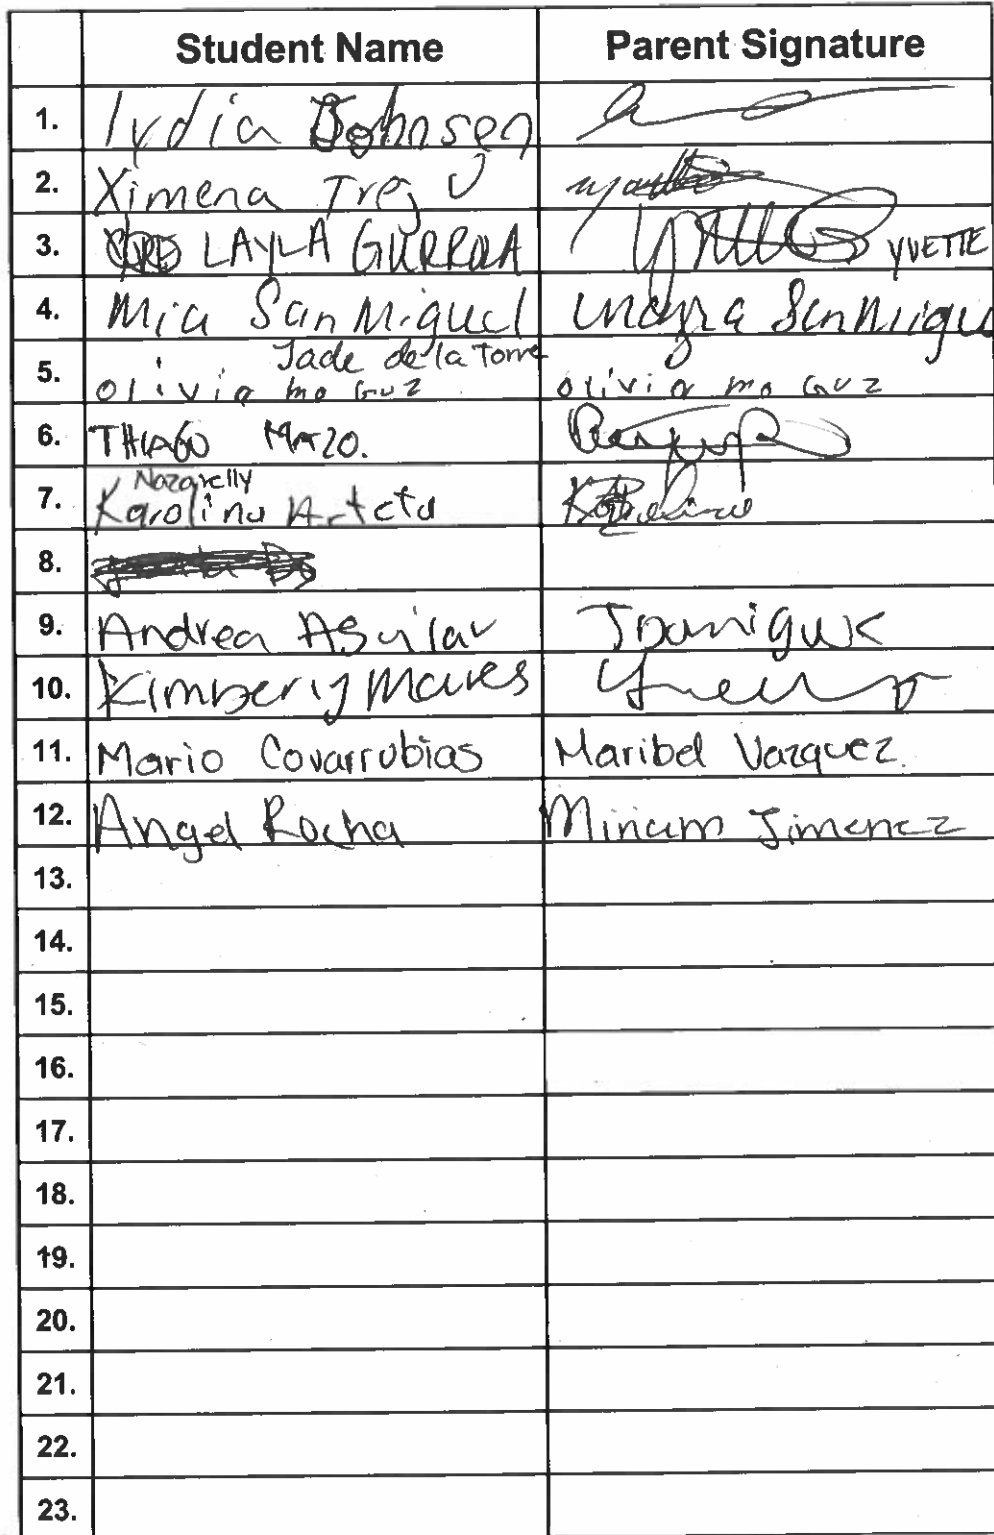 Student Name Parent Signature
1. lydia Johnson
2. Ximena Trejo
3. LAYLA GURROLA YVETTE
4. Mia San Miguel Mayra San Migu
Jade de la Torre
5. olivia mo Guz olivia mo Guz
6. THIAGO
Nazarelly
7. Karolina Arteta
8.
9. Andrea Aguilar
10. Kimberly Mares
11. Mario Covarrubias Maribel Vazquez.
12. Angel Rocha Miriam Jimenez
13.
14.
15.
16.
17.
18.
19.
20.
21.
22.
23.